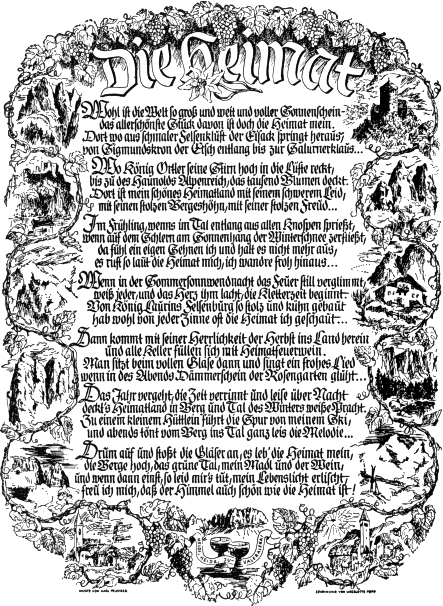 Die Heimat
Wohl ist die Welt so groß und weit und voller Sonnenschein
das allerschönste Stück davon ist doch die Heimat mein.
Dort wo aus schmaler Felsenkluft der Eisack springt heraus,
von Sigmundskron der Etsch entlang bis zur Salurnerklaus...
Wo König Ortler seine Stirn hoch in die Lüfte reckt,
bis zu des Haunolds Alpenreich, das tausend Blumen deckt.
Dort ist mein schönes Heimatland mit seinem schweren Leid,
mit seinen stolzen Bergeshöhn, mit seiner stolzen Freud...
Im Frühling, wenns im Tal entlang aus allen Knospen sprießt,
wenn auf dem Schlern am Sonnenhang der Winterschnee zerfließt,
da fühl ein eigen Sehnen ich und halt es nicht mehr aus,
es ruft so laut die Heimat mich, ich wandre froh hinaus...
Wenn in der Sommersonnwendnacht das Feuer still verglimmt,
weiß jeder, und das Herz ihm lacht, die Kletterzeit beginnt.
Von König Laurins Felsenburg so stolz und kühn gebaut
hab wohl von jeder Zinne ost die Heimat ich geschaut...
Dann kommt mit seiner Herrlichkeit der Herbst ins Land herein
und alle Keller füllen sich mit Heimatfeuerwein.
Man sitzt beim vollen Glase dann und singt ein frohes Lied
wenn in des Abends Dämmerschein der Rosengarten glüht...
Das Jahr vergeht, die Zeit verrinnt und leise über Nacht
deckt's Heimatland in Berg und Tal des Winters weiße Pracht.
Zu einem kleinem Hüttlein führt die Spur von meinem Ski,
und abends tönt vom Berg ins Tal ganz leis die Melodie...
Drum auf und stoßt die Gläser an, es leb' die Heimat mein,
die Berge hoch, das grüne Tal, mein Madl und der Wein,
und wenn dann einst, so leid mir's tut, mein Lebenslicht erlischt
freu ich mich, daß der Himmel auch schön wie die Heimat ist!